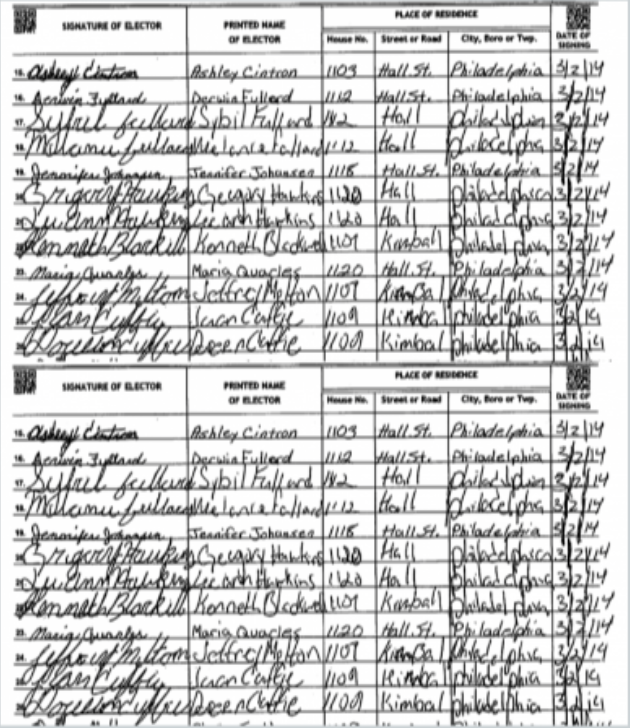 SIGNATURE OF ELECTOR PRINTED NAME OF ELECTOR PLACE OF RESIDENCE House No. Street or Road City, Boro or Twp. DATE OF SIGNING
15. Ashley Cintron Ashley Cintron 1103 Hall St. Philadelphia 3/2/14
16. Derwin Fullard Derwin Fullard 1112 Hall St. Philadelphia 3/2/14
17. Sybil Fullard Sybil Fullard Hall Philadelphia 2/14
18. Fullard Melanie Fullard 1112 Hall Philadelphia 3/2/14
19. Jennifer Johansen Jennifer Johansen 1118 Hall St. Philadelphia 3/2/14
20. Gregory Hawkins Gregory Hawkins 1120 Hall Philadelphia 3/2/14
21. Lu Ann Hawkins Lu Ann Hawkins 1120 Hall Philadelphia 3/2/14
22. Kenneth Kenneth 1107 Kimball Philadelphia 3/2/14
23. Maria Quarles Maria Quarles 1120 Hall St. Philadelphia 3/2/14
24. Jeffrey Melton Jeffrey Melton 1107 Kimbal Philadelphia 3/2/14
25. Juan Cuffie 1109 Kimbal Philadelphia 3/2/14
26. Doreen Cuffie 1109 Kimbal Philadelphia 3/2/14
SIGNATURE OF ELECTOR PRINTED NAME OF ELECTOR PLACE OF RESIDENCE House No. Street or Road City, Boro or Twp. DATE OF SIGNING
15. Ashley Cintron Ashley Cintron 1103 Hall St. Philadelphia 3/2/14
16. Derwin Fullard Derwin Fullard 1112 Hall St. Philadelphia 3/2/14
17. Sybil Fullard Sybil Fullard Hall Philadelphia 2/14
18. Fullard Melanie Fullard 1112 Hall Philadelphia 3/2/14
19. Jennifer Johansen Jennifer Johansen 1118 Hall St. Philadelphia 3/2/14
20. Gregory Hawkins Gregory Hawkins 1120 Hall Philadelphia 3/2/14
21. Lu Ann Hawkins Lu Ann Hawkins 1120 Hall Philadelphia 3/2/14
22. Kenneth Kenneth 1107 Kimball Philadelphia 3/2/14
23. Maria Quarles Maria Quarles 1120 Hall St. Philadelphia 3/2/14
24. Jeffrey Melton Jeffrey Melton 1107 Kimbal Philadelphia 3/2/14
25. Juan Cuffie 1109 Kimbal Philadelphia 3/2/14
26. Doreen Cuffie 1109 Kimbal Philadelphia 3/2/14